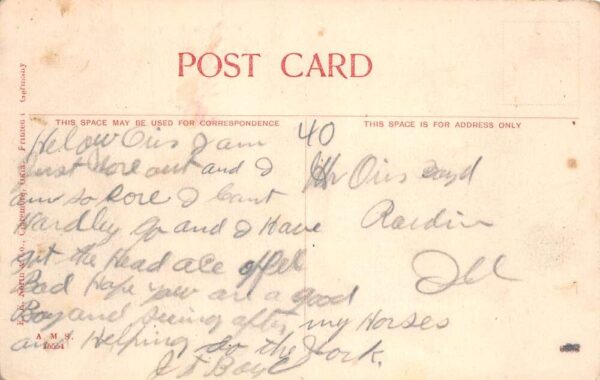 POST CARD
THIS SPACE MAY BE USED FOR CORRESPONDENCE
THIS SPACE IS FOR ADDRESS ONLY
Helow Oris I am
just Wore out and I
am so Sore I Cant
Hardley go and I Have
got the Head ace offel
Bad Hope you are a good
Boy and seeing after my Horses
and Helping do the Work.
J F
40
Mr Oris
Rardin
Ill
Claremore, Okla. Printed in Germany
A. M. S.